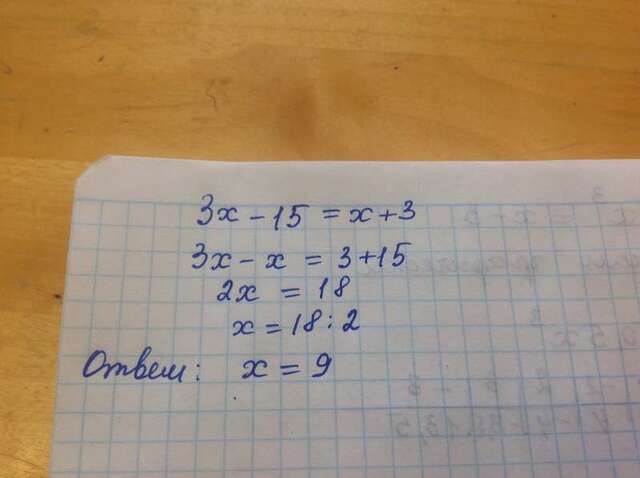 3x - 15 = x + 3
3x - x = 3 + 15
2x = 18
x = 18 : 2
Ответ: x = 9